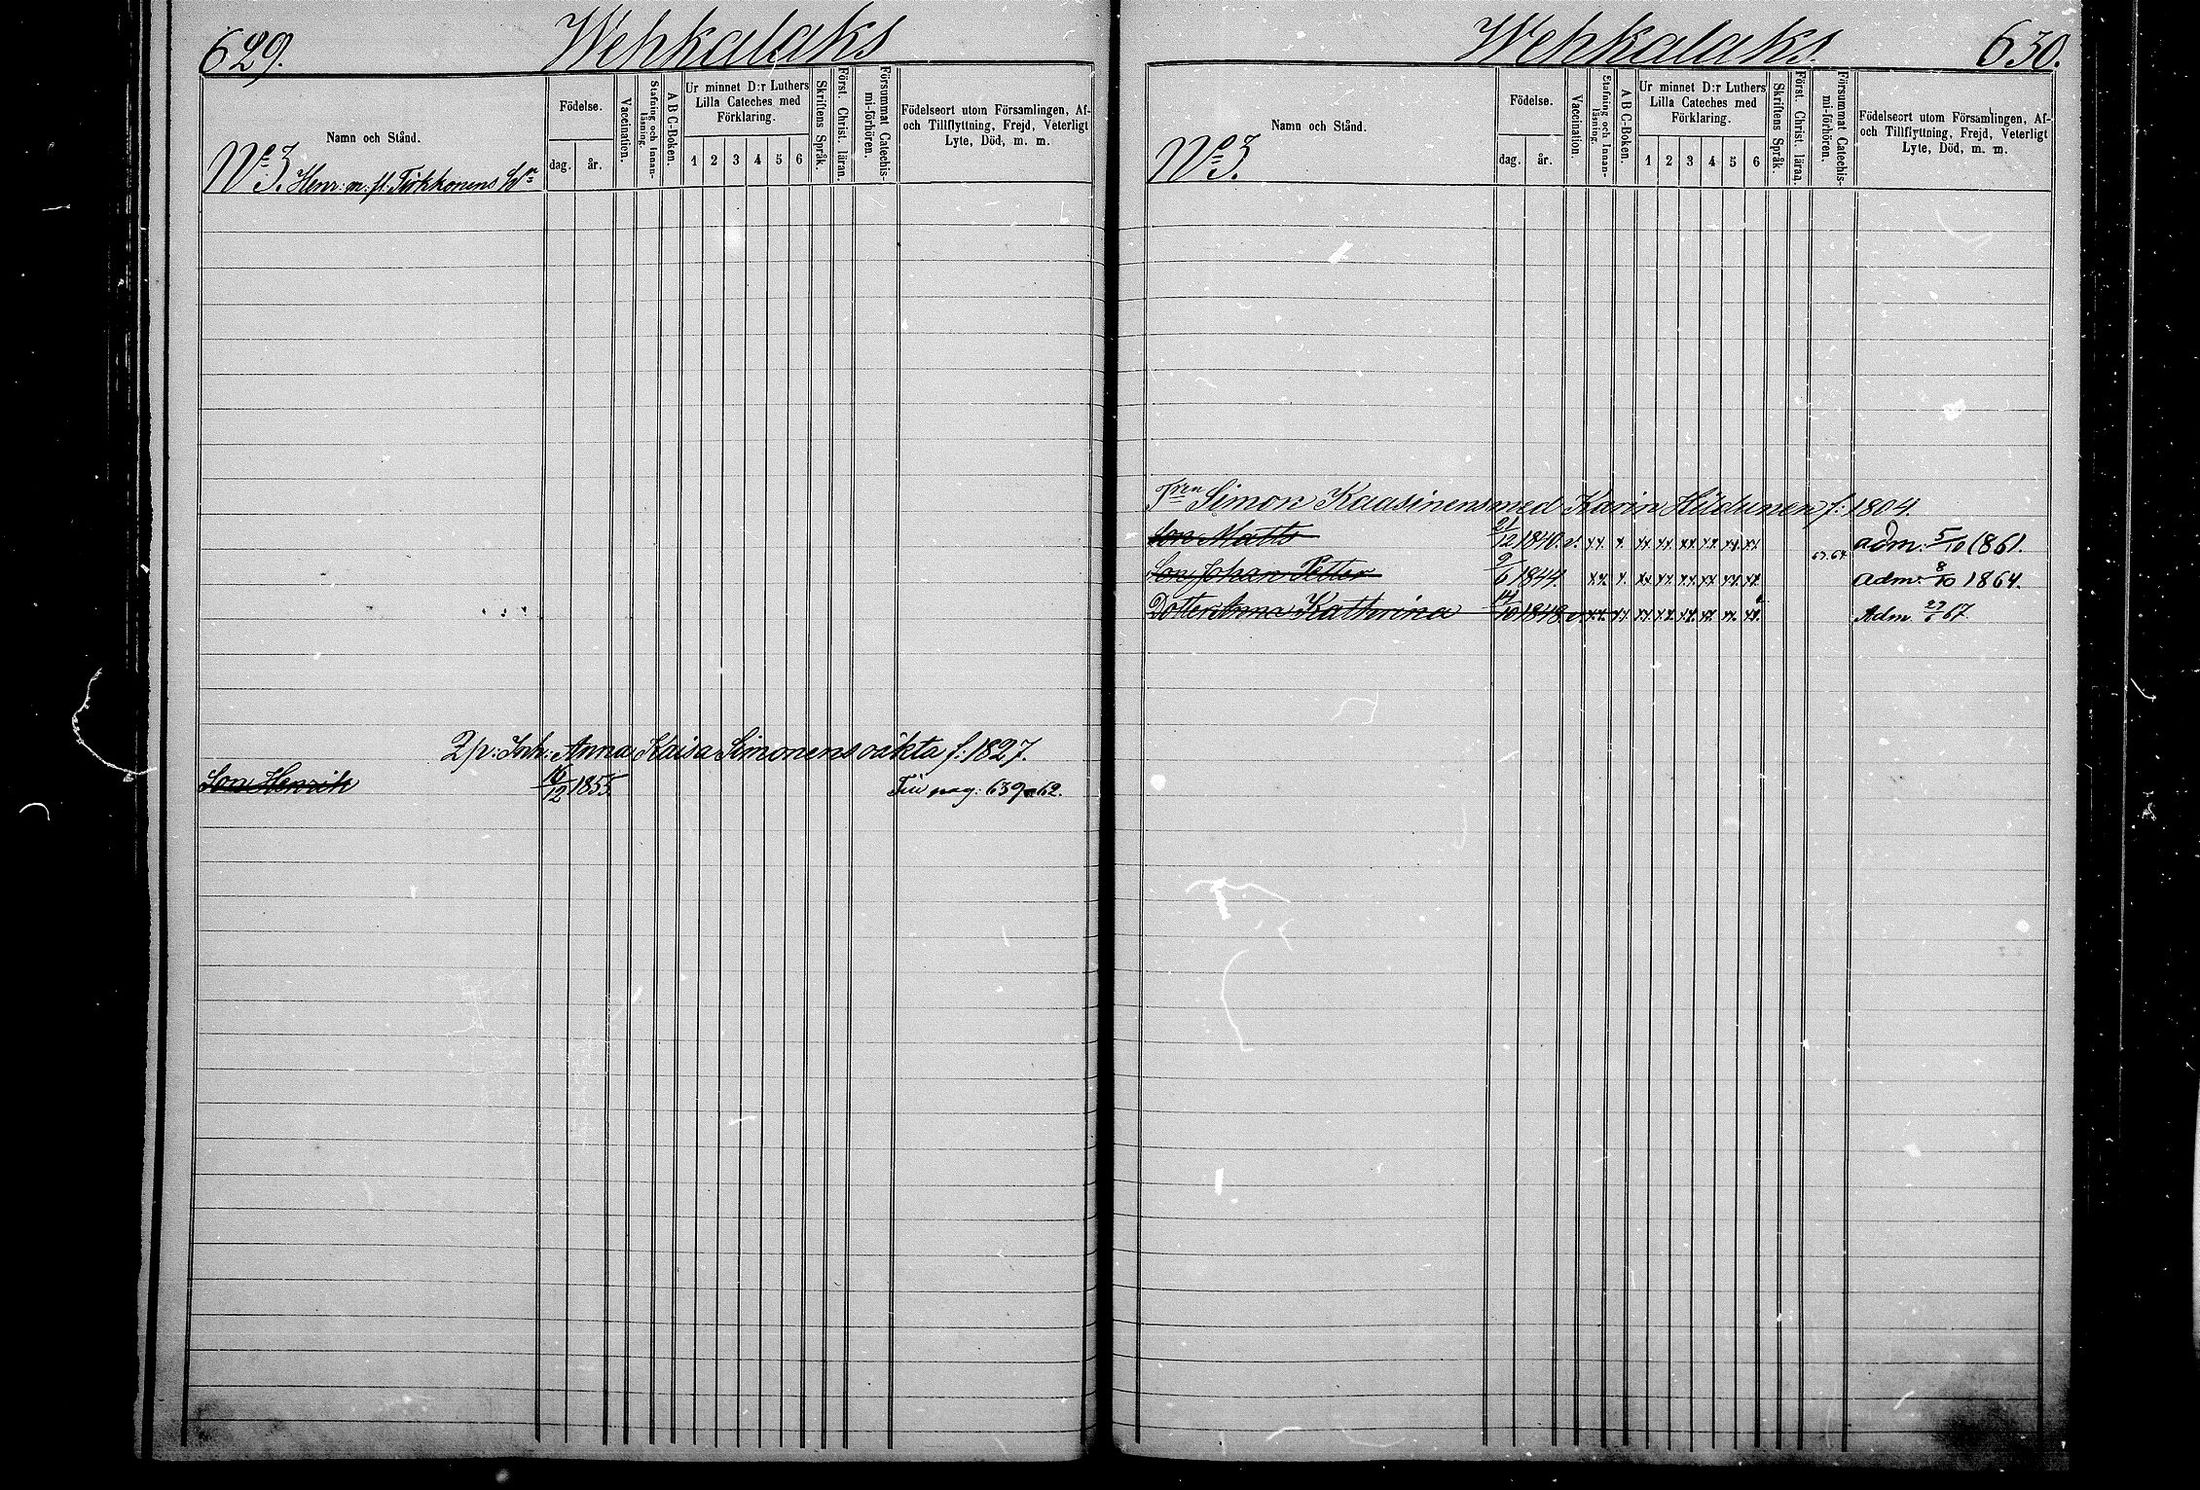 629.
Wehkalaks
Namn och Stånd.
Födelse.
dag.
år.
Vaccination.
Stafning och Innan-
läsning.
A B C-Boken.
Ur minnet D:r Luthers
Lilla Cateches med
Förklaring.
1 2 3 4 5 6
Skriftens Språk.
Först. Christ. läran.
Försummat Catechis-
mi-förhören.
Födelseort utom Församlingen, Af-
och Tillflyttning, Frejd, Veterligt
Lyte, Död, m. m.
No 3. Henr: m. fl. Tirkkonens
Inh: Anna Kaisa Simonens oäkta f: 1827.
Son Henrik 16/12 1855. pag: 639 62.
Wehkalaks.
630.
Namn och Stånd.
Födelse.
dag.
år.
Vaccination.
Stafning och Innan-
läsning.
A B C-Boken.
Ur minnet D:r Luthers
Lilla Cateches med
Förklaring.
1 2 3 4 5 6
Skriftens Språk.
Först. Christ. läran.
Försummat Catechis-
mi-förhören.
Födelseort utom Församlingen, Af-
och Tillflyttning, Frejd, Veterligt
Lyte, Död, m. m.
No 3.
Simon Kaasinens med Karin f: 1804.
Son Matts 21/12 1840. v. xx x xx xx xx xx xx xx adm: 5/10 1861.
Son Johan Petter 9/6 1844. xx. x. xx xx xx xx xx. xx. 63.64. adm: 8/10 1864.
Dotter Anna Kathrina 14/10 1848 v. xx. xx xx xx xx. xx. xx. xx. Adm 23/6 67.